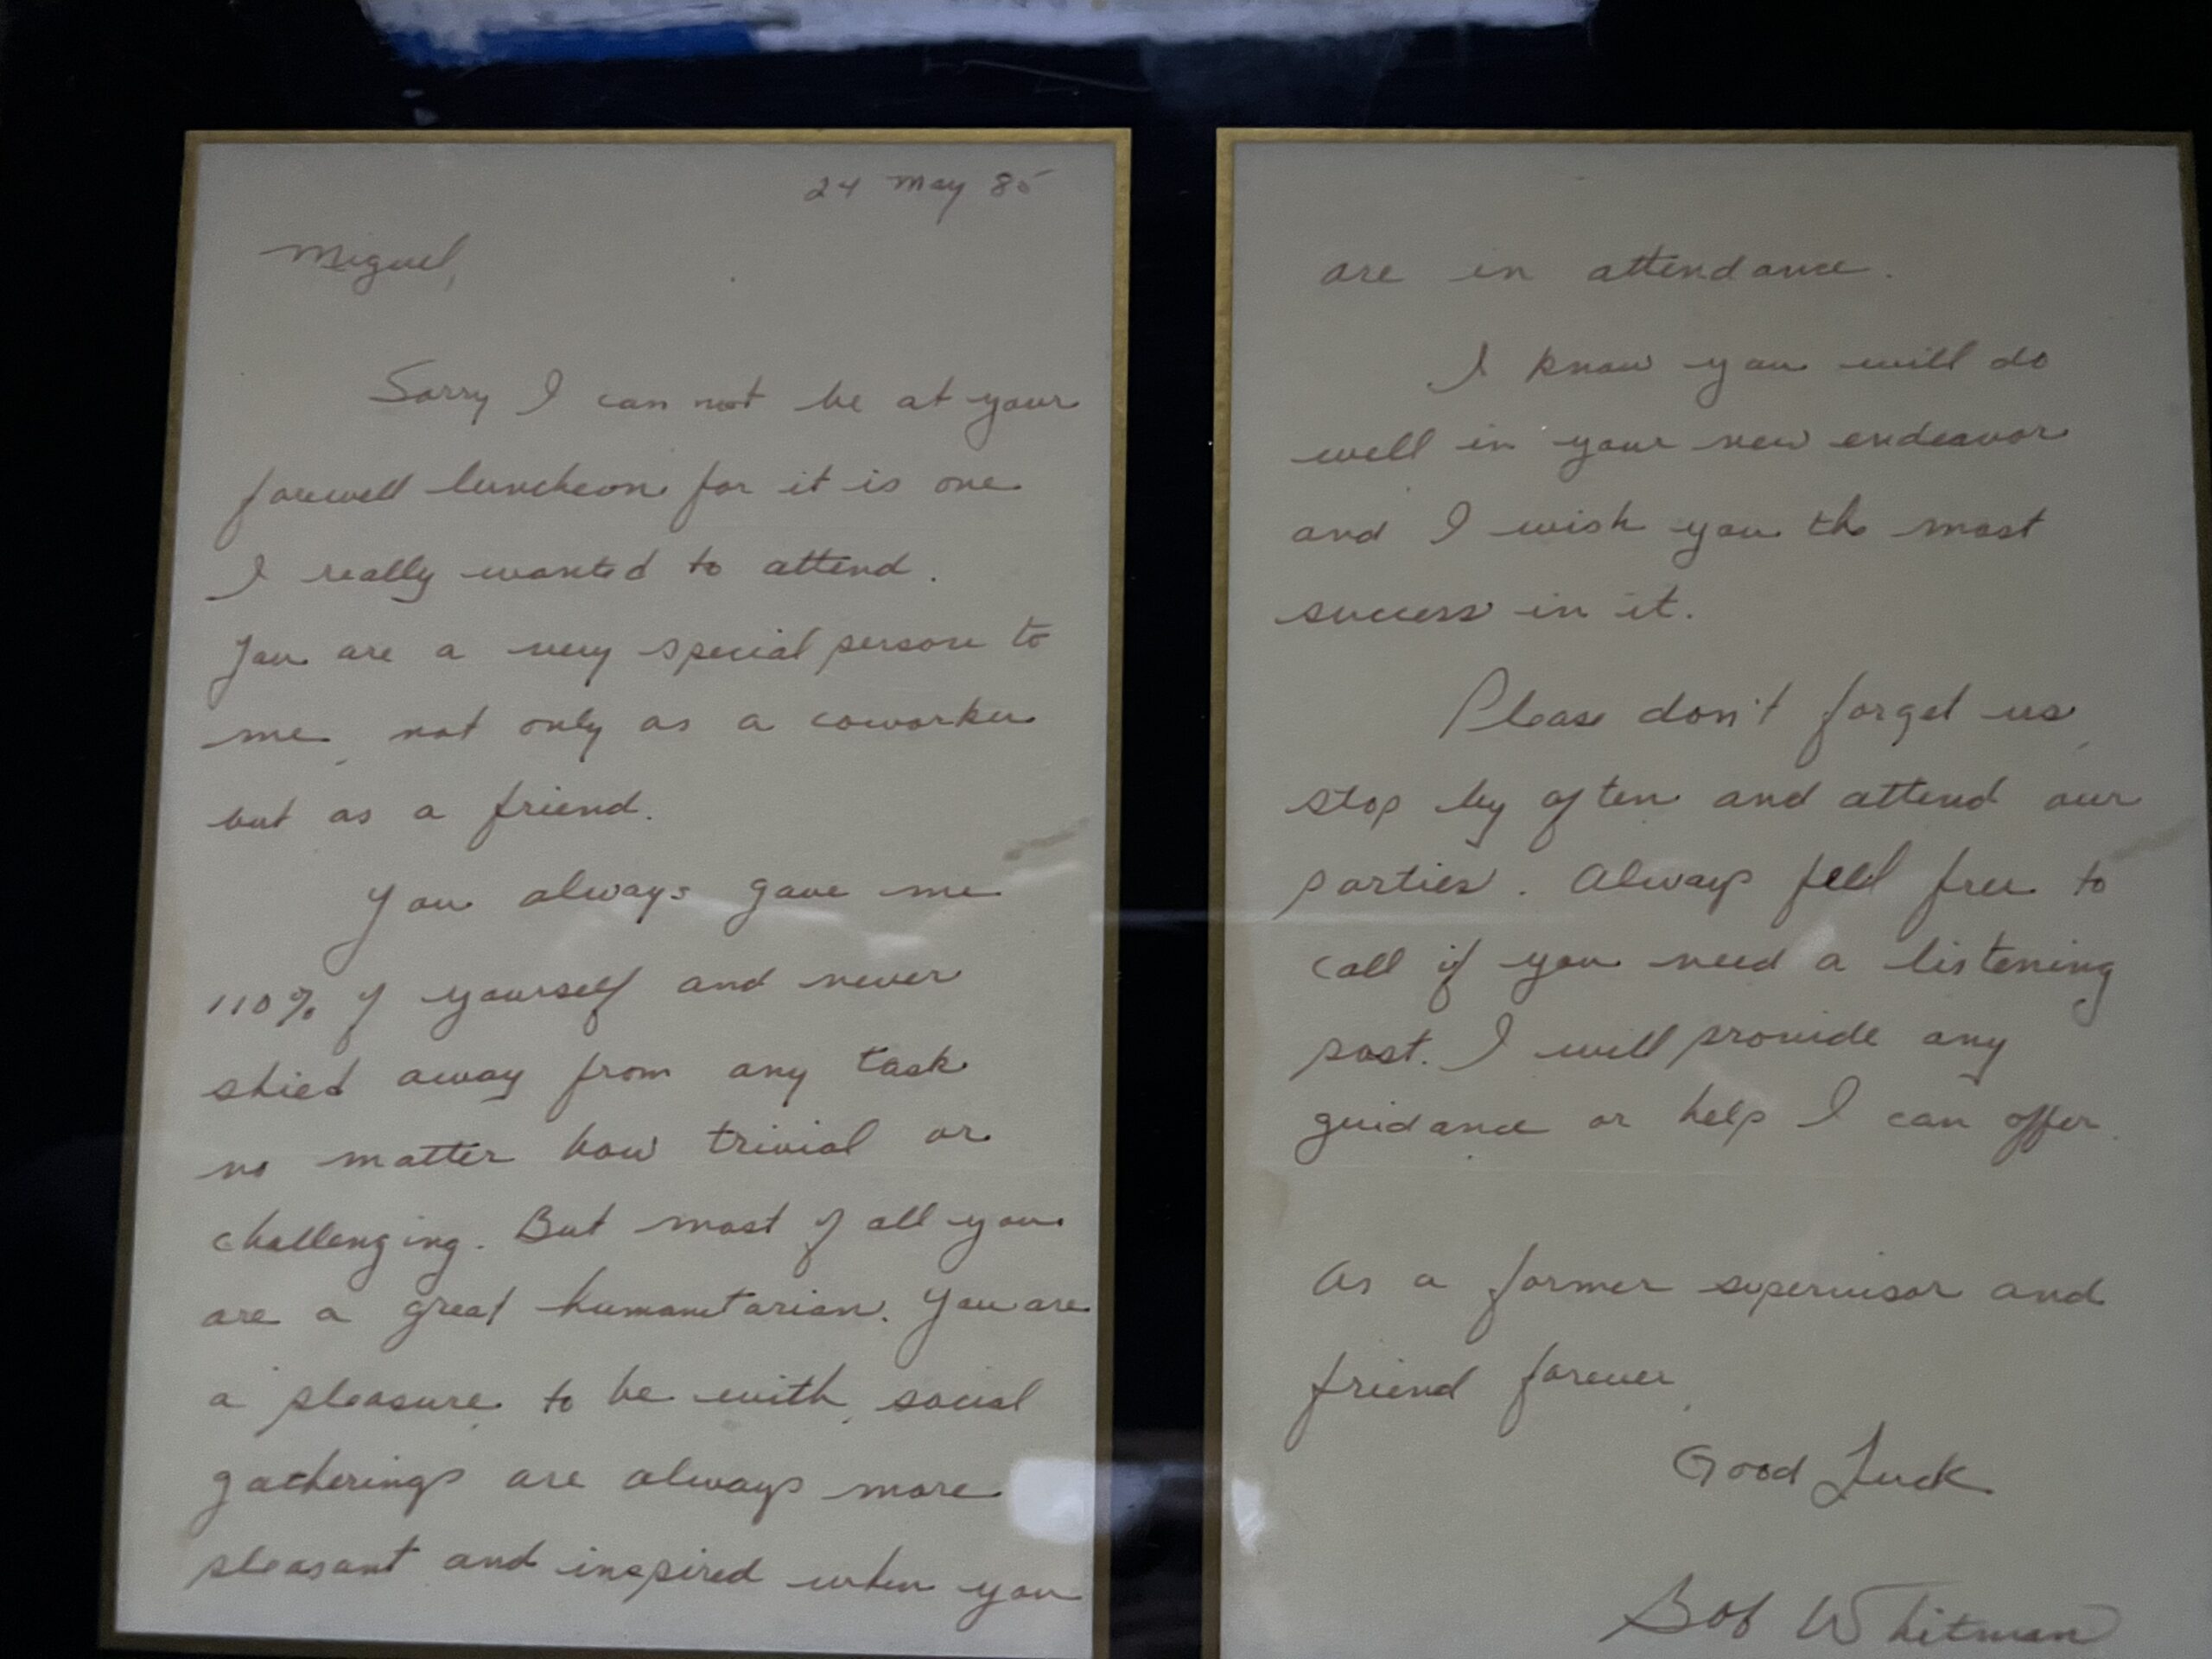 24 May 85
Miguel,
Sorry I can not be at your
farewell luncheon for it is one
I really wanted to attend.
You are a very special person to
me, not only as a coworker
but as a friend.
You always gave me
110% of yourself and never
shied away from any task
no matter how trivial or
challenging. But most of all you
are a great humanitarian. You are
a pleasure to be with, social
gatherings are always more
pleasant and inspired when you
are in attendance.
I know you will do
well in your new endeavor
and I wish you the most
success in it.
Please don't forget us,
stop by often and attend our
parties. Always feel free to
call if you need a listening
post. I will provide any
guidance or help I can offer.
As a former supervisor and
friend forever,
Good Luck
Bob Whitman